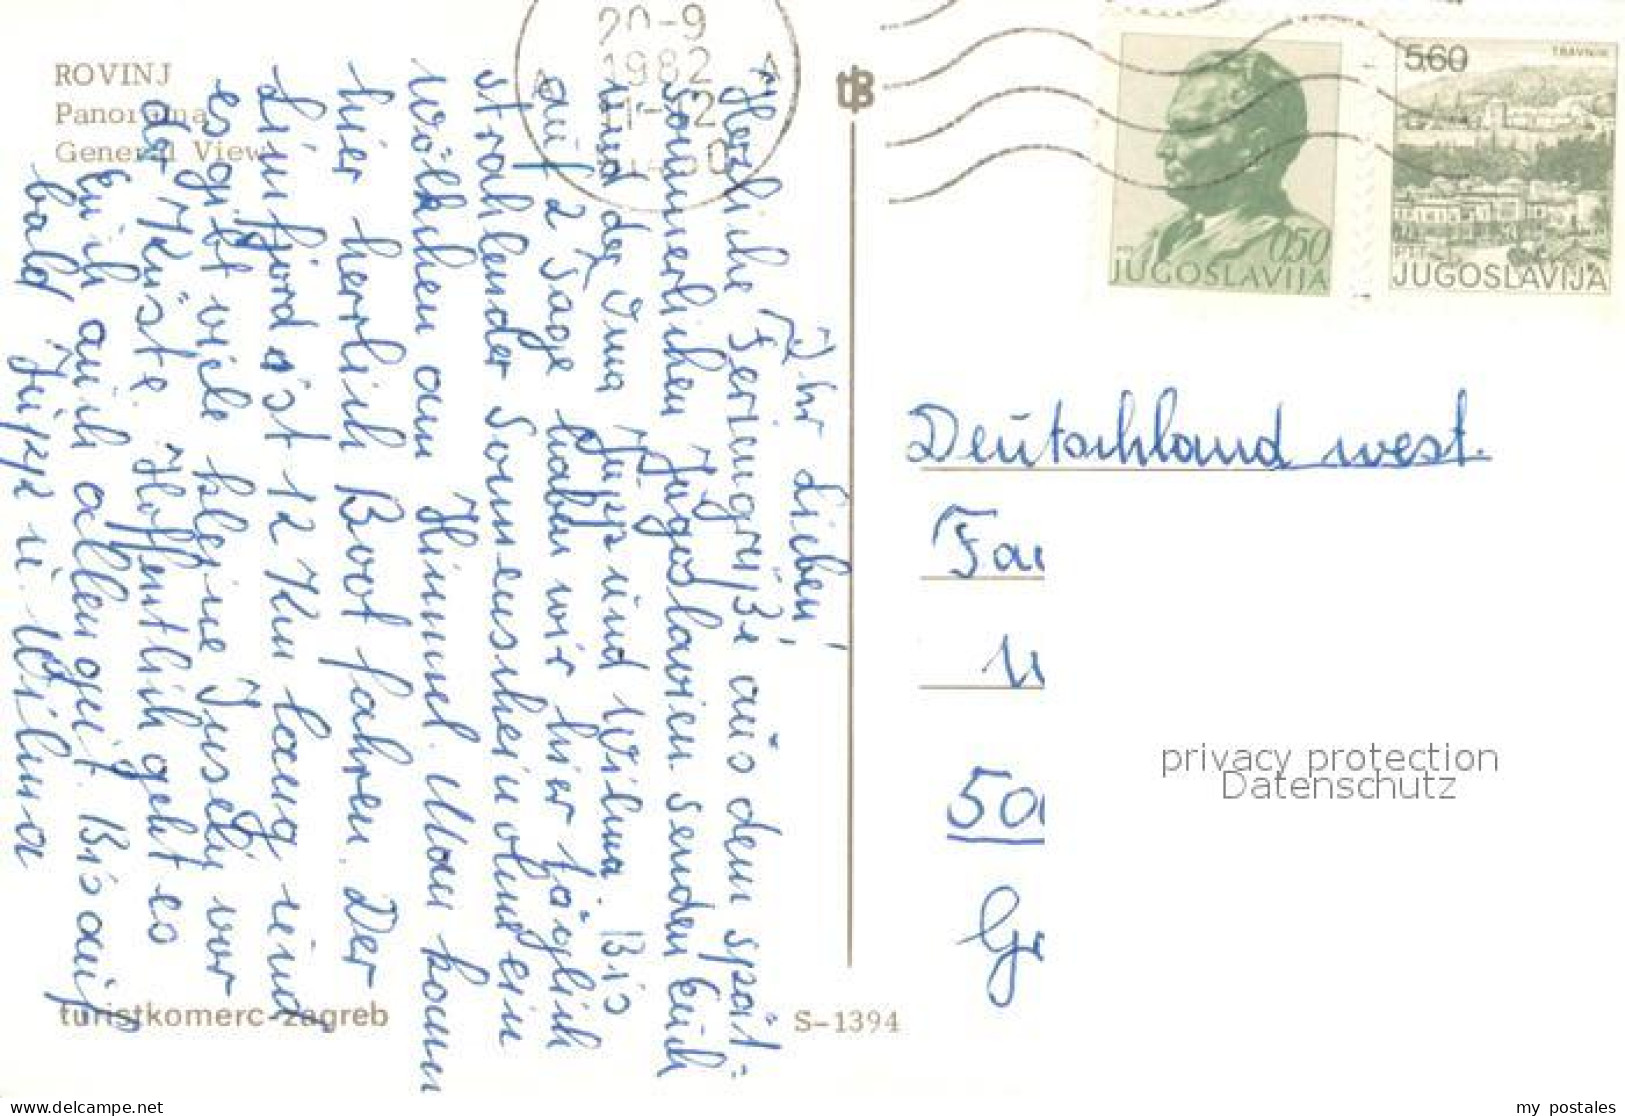 ROVINJ
Panorama
General View
20-9
1982
Ihr Lieben!
Herzliche Feriengrüße aus dem spät-
sommerlichen Jugoslawien senden Euch
und der Oma Jupp und Wilma. Bis
auf 2 Tage haben wir hier täglich
strahlender Sonnenschein ohne ein
Wölkchen am Himmel. Man kann
hier herrlich Boot fahren. Der
Limfjord ist 12 Km lang und
es gibt viele kleine Inseln vor
der Küste. Hoffentlich geht es
Euch auch allen gut. Bis auf
bald Jupp u. Wilma
turistkomerc-zagreb
S-1394
0,50
JUGOSLAVIJA
5,60
TRAVNIK
JUGOSLAVIJA
Deutschland west.
privacy protection
Datenschutz
delcampe.net
my_postales